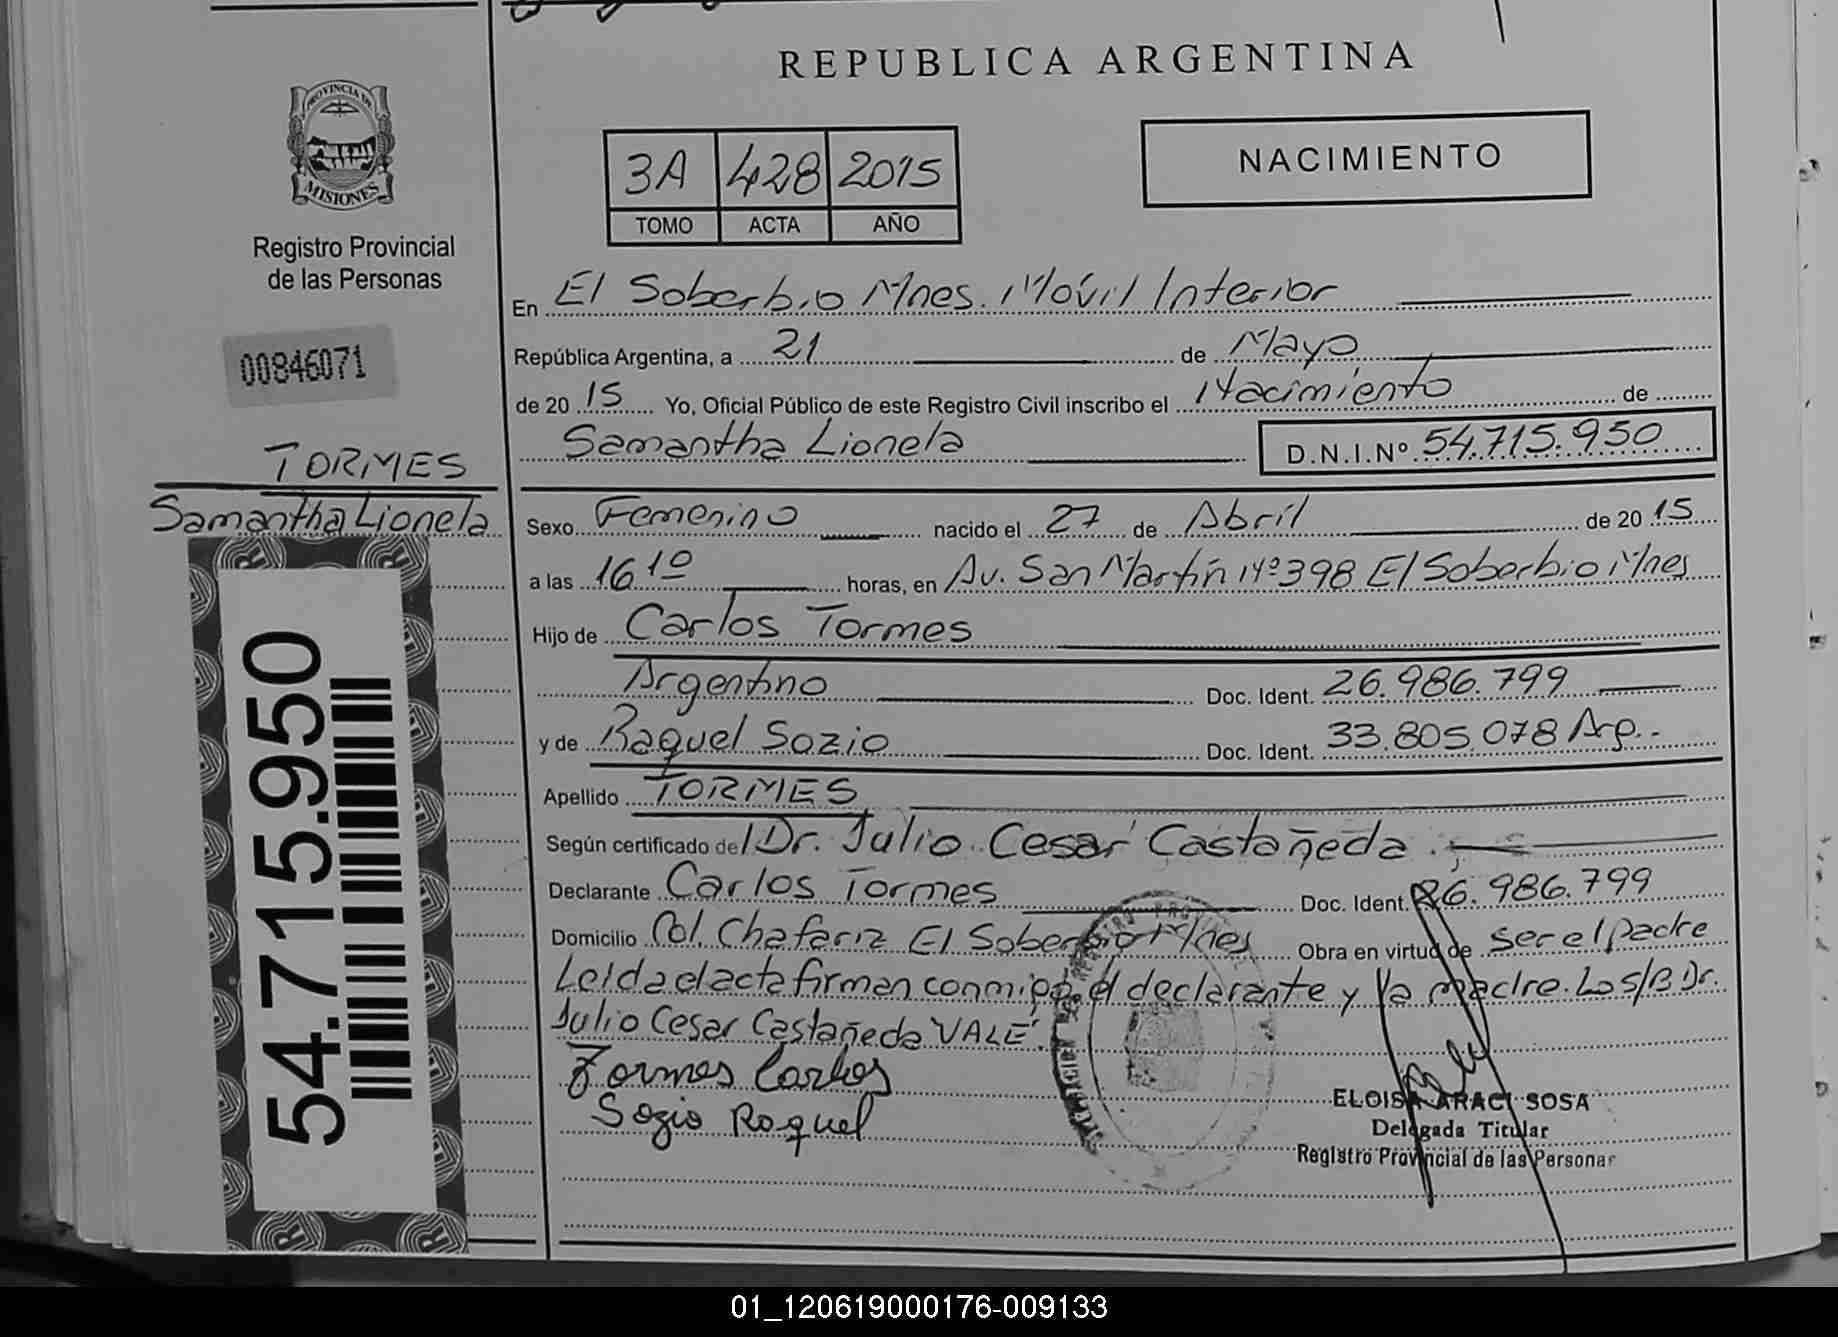 REPUBLICA ARGENTINA
PROVINCIA DE
MISIONES
Registro Provincial
de las Personas
00846071
TORMES
Samantha Lionela
54.715.950
3A 428 2015
TOMO ACTA AÑO
NACIMIENTO
En El Soberbio Mnes. Móvil Interior
República Argentina, a 21 de Mayo
de 20 15 Yo, Oficial Público de este Registro Civil inscribo el Nacimiento de
Samantha Lionela D.N.I.Nº 54.715.950
Sexo Femenino nacido el 27 de Abril de 20 15
a las 16 10 horas, en Av. San Martín Nº 398 El Soberbio Mnes
Hijo de Carlos Tormes
Argentino Doc. Ident. 26.986.799
y de Raquel Sozio Doc. Ident. 33.805.078 Arg.
Apellido TORMES
Según certificado del Dr. Julio Cesar Castañeda
Declarante Carlos Tormes Doc. Ident. 26.986.799
Domicilio Col. Chafariz El Soberbio Mnes Obra en virtud de ser el padre
Leida el acta firman conmigo, el declarante y la madre. Lo s/B Dr.
Julio Cesar Castañeda "VALE".
Tormes Carlos
Sozio Raquel
ELOISA ARACI SOSA
Delegada Titular
Registro Provincial de las Personas
01_120619000176-009133